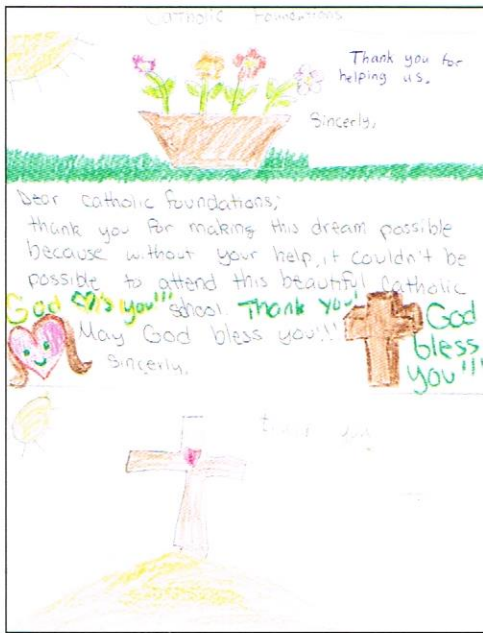 Catholic Foundations
Thank you for
helping us.
Sincerly,
Dear Catholic foundations,
thank you for making this dream possible
because without your help, it couldn't be
possible to attend this beautiful Catholic
God ♡'s you!!! school. Thank You!
May God bless you!!!
God
bless
you!!!
Sincerly,